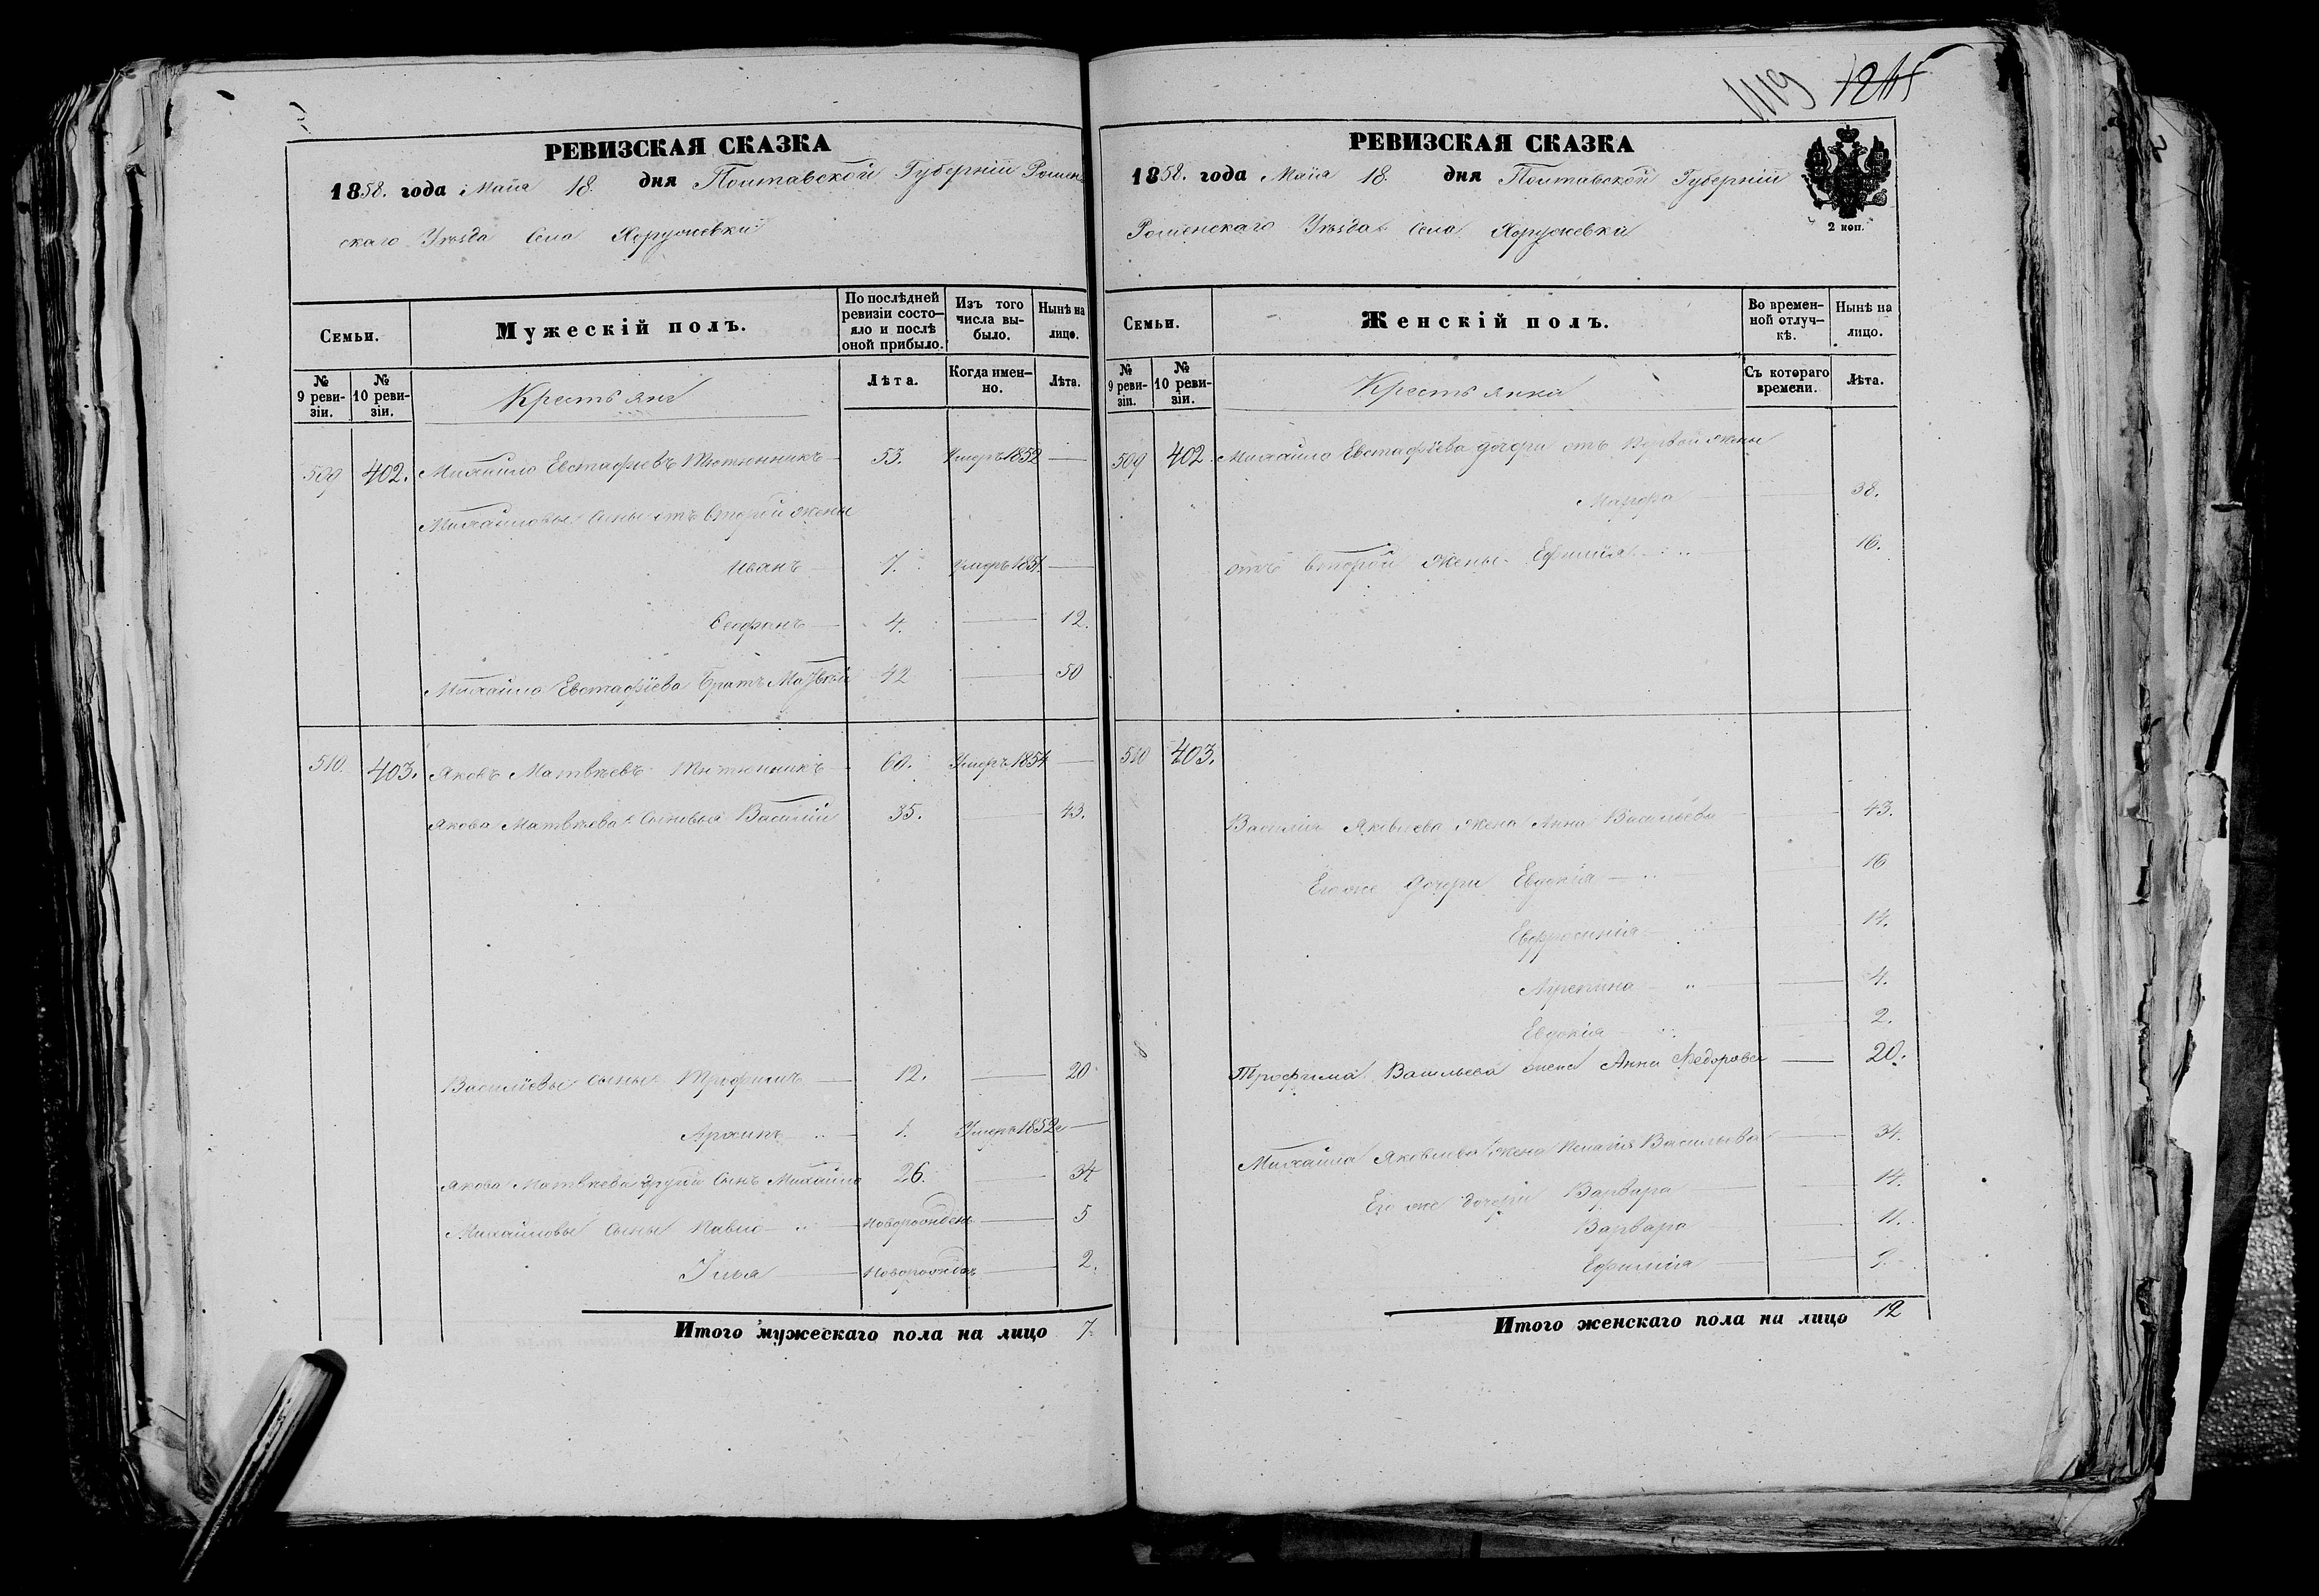 1119 1245
РЕВИЗСКАЯ СКАЗКА
1858. года Маія 18. дня Полтавской Губерніи Ромен-
скаго Уѣзда Села Хоружевки
Семьи.
Мужескій полъ.
По послѣдней ревизіи состо-яло и послѣ оной прибыло.
Изъ того числа вы-было.
Нынѣ на лицо.
№ 9 реви-зіи.
№ 10 реви-зіи.
Крестьянъ
Лѣта.
Когда имен-но.
Лѣта.
509 402. Михайло Евстафіевъ Тютюнникъ 53. Умеръ 1852 —
Михайловы Сыны отъ второй жены
Иванъ 7. Умеръ 1851. —
Стефанъ 4. — 12.
Михайла Евстафіева Братъ Матвѣй 42 — 50
510. 403. Яковъ Матвѣевъ Тютюнникъ 60. Умеръ 1854 —
Якова Матвѣева Сыновья Василій 35. — 43.
Василіевы сыны Трофимъ 12. — 20
Архипъ 1. Умеръ 1852 —
Якова Матвѣева другой Сынъ Михайло 26. — 34
Михайловы Сыны Павло новорожденъ — 5
Илья новорожденъ — 2.
Итого мужескаго пола на лицо 7.
РЕВИЗСКАЯ СКАЗКА
1858. года Маія 18. дня Полтавской Губерніи
Роменскаго Уѣзда Села Хоружевки
2 коп.
Семьи.
Женскій полъ.
Во времен-ной отлуч-кѣ.
Нынѣ на лицо.
№ 9 реви-зіи.
№ 10 реви-зіи.
Крестьянки
Съ котораго времени.
Лѣта.
509 402. Михайла Евстафіева дочери отъ Первой жены
Марфа — 38.
отъ второй Жены Ефимія — 16.
510 403.
Василія Яковлева жена Анна Васильева — 43.
Его же дочери Евдокія — 16
Евфросинія — 14.
Агрепина — 4.
Евдокія — 2.
Трофима Васильева жена Анна Федорова — 20.
Михайла Яковлева жена Пелагія Васильева — 34.
Его же дочери Варвара — 14.
Варвара — 11.
Ефимія —
Итого женскаго пола на лицо 12